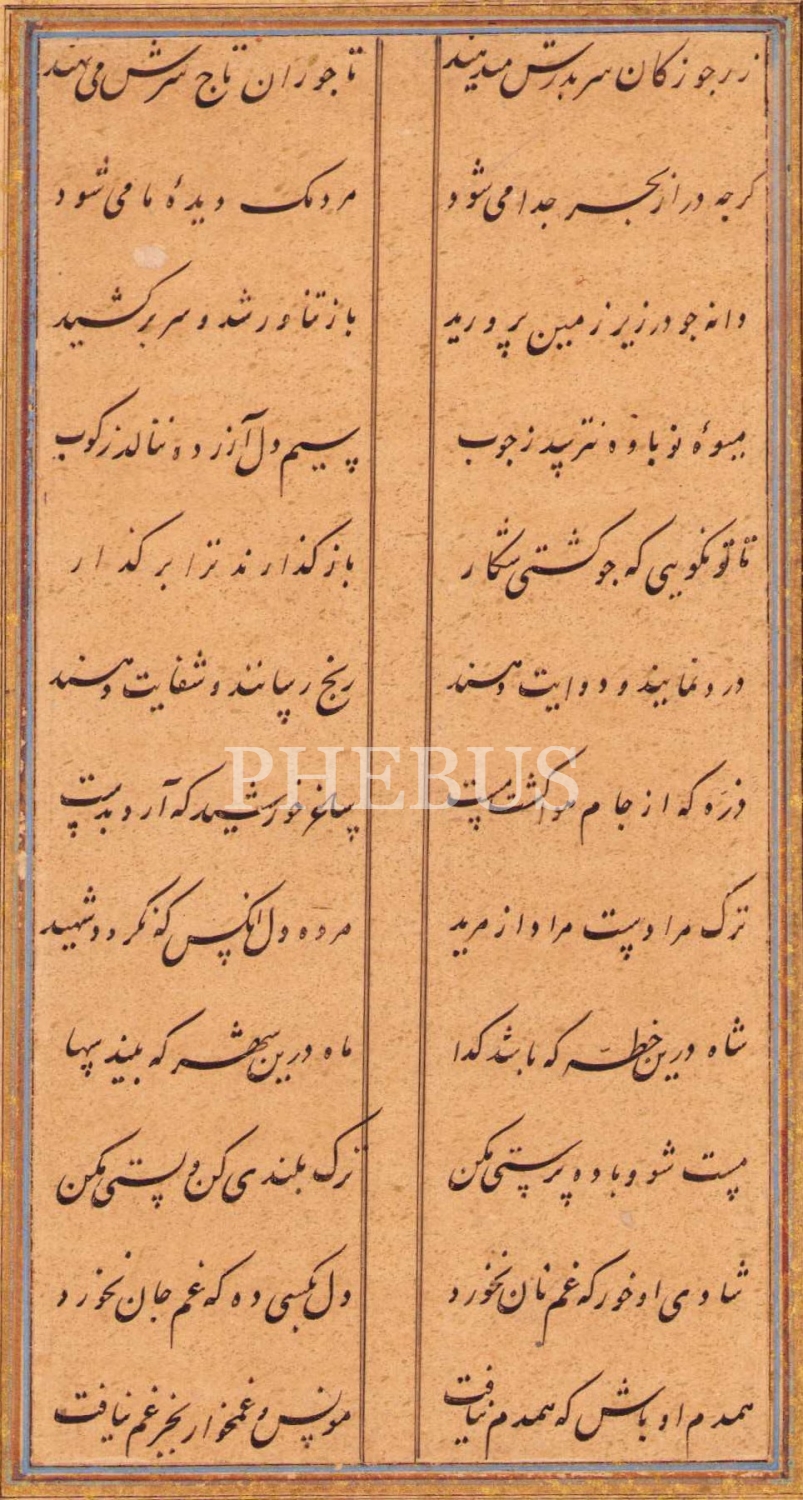 زر جو ز کان سر بدرش میدهند
تاجوران تاج سرش می نهند
کرچه در از بحر جدا می شود
مردمک دیدهٔ ما می شود
دانه جو در زیر زمین پرورید
باز تناور شد و سر بر کشید
میوهٔ نوباوه نترسد ز چوب
سیم دل آزرده ننالد ز کوب
تا تو نکویی که جو کشتی شکار
باز گذارند ترا بر کذار
درد نمایند و دوایت دهند
رنج رسانند و شفایت دهند
ذرّه که از جام هوا کشت مست
ساغر خورشید که آرد بدست
ترک مرادست مراد از مرید
مرده دل آنکس که نکردد شهید
شاه درین خطّه که باشد کدا
ماه درین شهر که بیند سها
مست شو و باده پرستی مکن
ترک بلندی کن و پستی مکن
شادی او خور که غم نان نخورد
دل بکسی ده که غم جان نخورد
همدم او باش که همدم نیافت
مونس و غمخوار بجز غم نیافت
PHEBUS